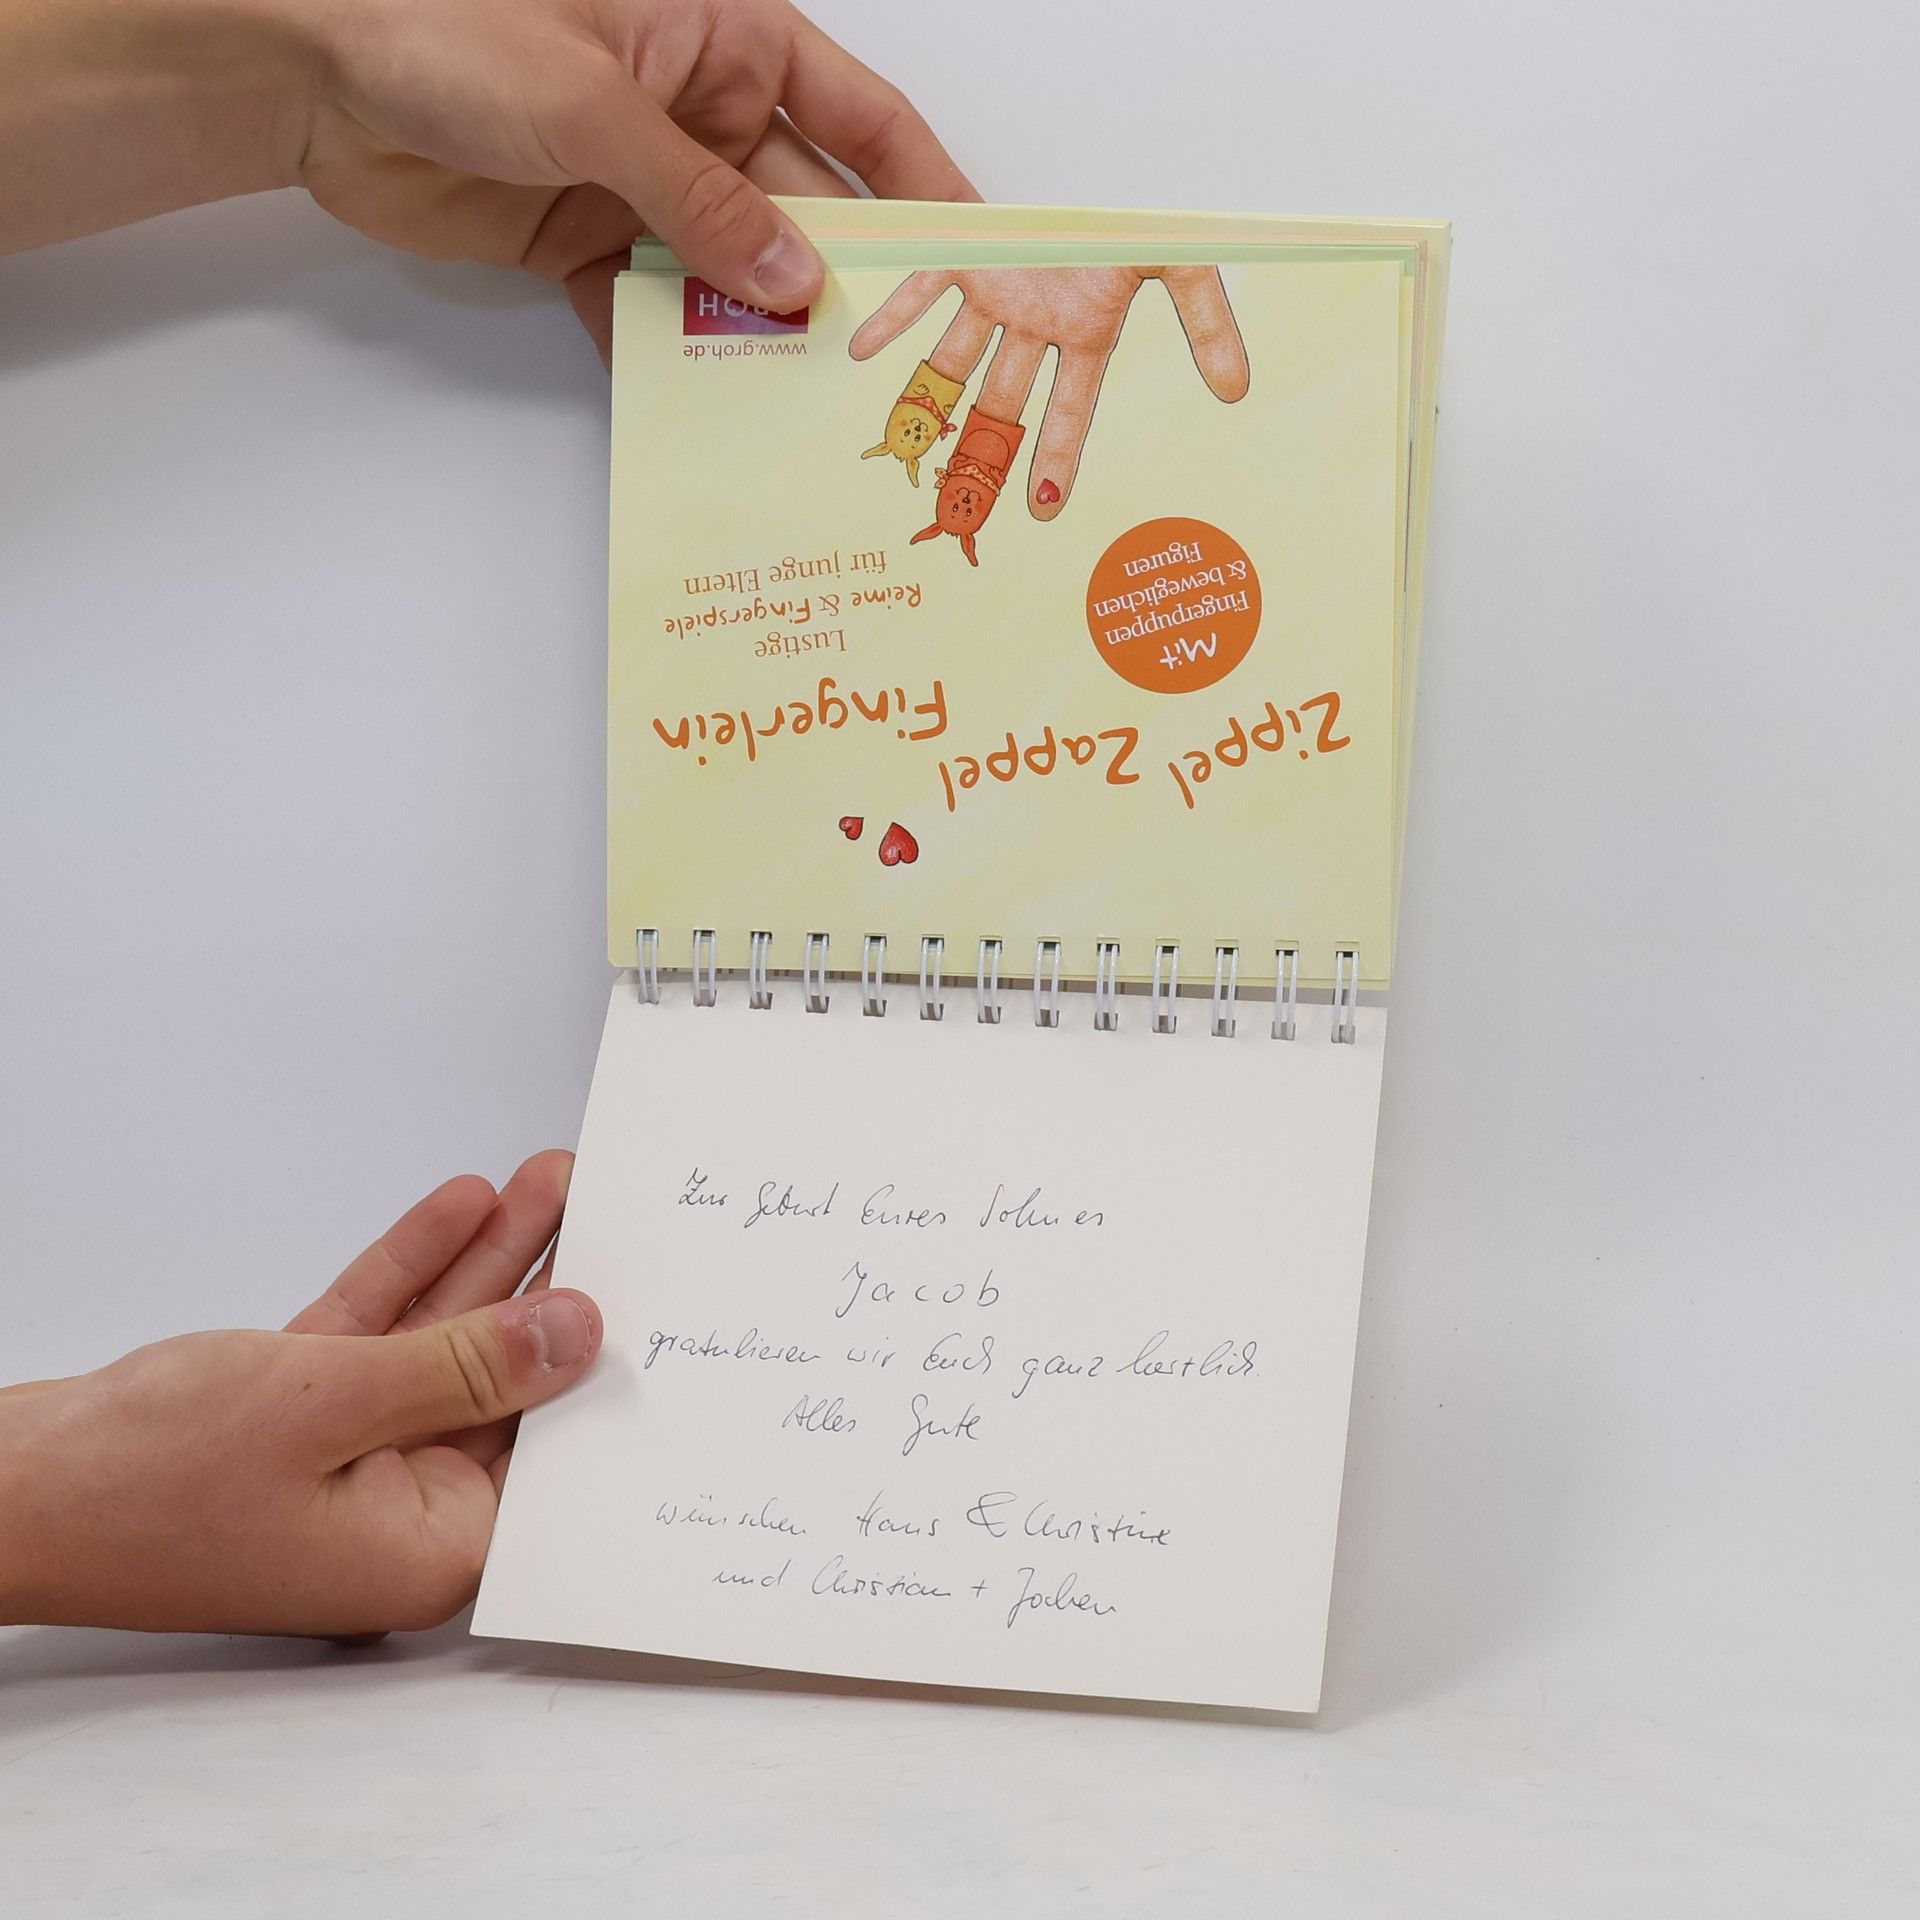 Zippel Zappel
Fingerlein
Lustige
Reime & Fingerspiele
für junge Eltern
Mit
Fingerpuppen
& beweglichen
Figuren
www.groh.de
GROH
Zur Geburt Eures Sohnes
Jacob
gratulieren wir Euch ganz herzlich.
Alles Gute
wünschen Hans & Christine
und Christian + Jochen